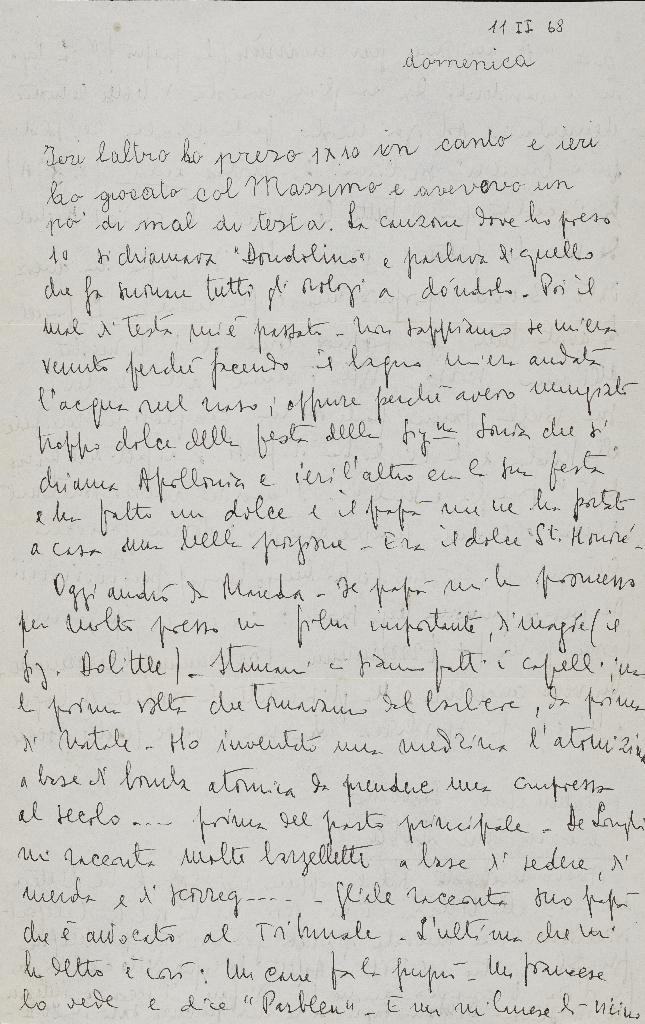 11 II 68
domenica
Ieri l'altro ho preso 1X10 in canto e ieri
ho giocato col Massimo e avevevo un
pó di mal di testa. La canzone dove ho preso
10 si chiamava "Dondolino" e parlava di quello
che fa suonare tutti gli orologi a dóndolo. Poi il
mal di testa mi è passato - Non sappiamo se mi era
venuto perché facendo il bagno mi era andata
l'acqua nel naso, oppure perché avevo mangiato
troppo dolce della festa della Sig.na Sonia che si
chiama Apollonia e ieri l'altro era la sua festa
e ha fatto un dolce e il papà me ne ha portato
a casa una bella porzione - Era il dolce St. Honoré -
Oggi andrò da - Il papà mi ha promesso
per molto presto un film importante, di magie (il
Sig. Dolittle) - Stamani ci siamo fatti i capelli; era
la prima volta che tornavamo dal barbiere, da prima
di Natale - Ho inventato una medicina l'atomizina
a base di bomba atomica da prendere una compressa
al secolo .... prima del pasto principale - De Longhi
mi racconta molte barzellette a base di sedere, di
merda e di scorreg---- - Gliele racconta suo papà
che è avvocato al Tribunale - L'ultima che mi
ha detto è così: Un cane fa la pupù - Un francese
lo vede e dice "Parbleu" - E un milanese lì vicino